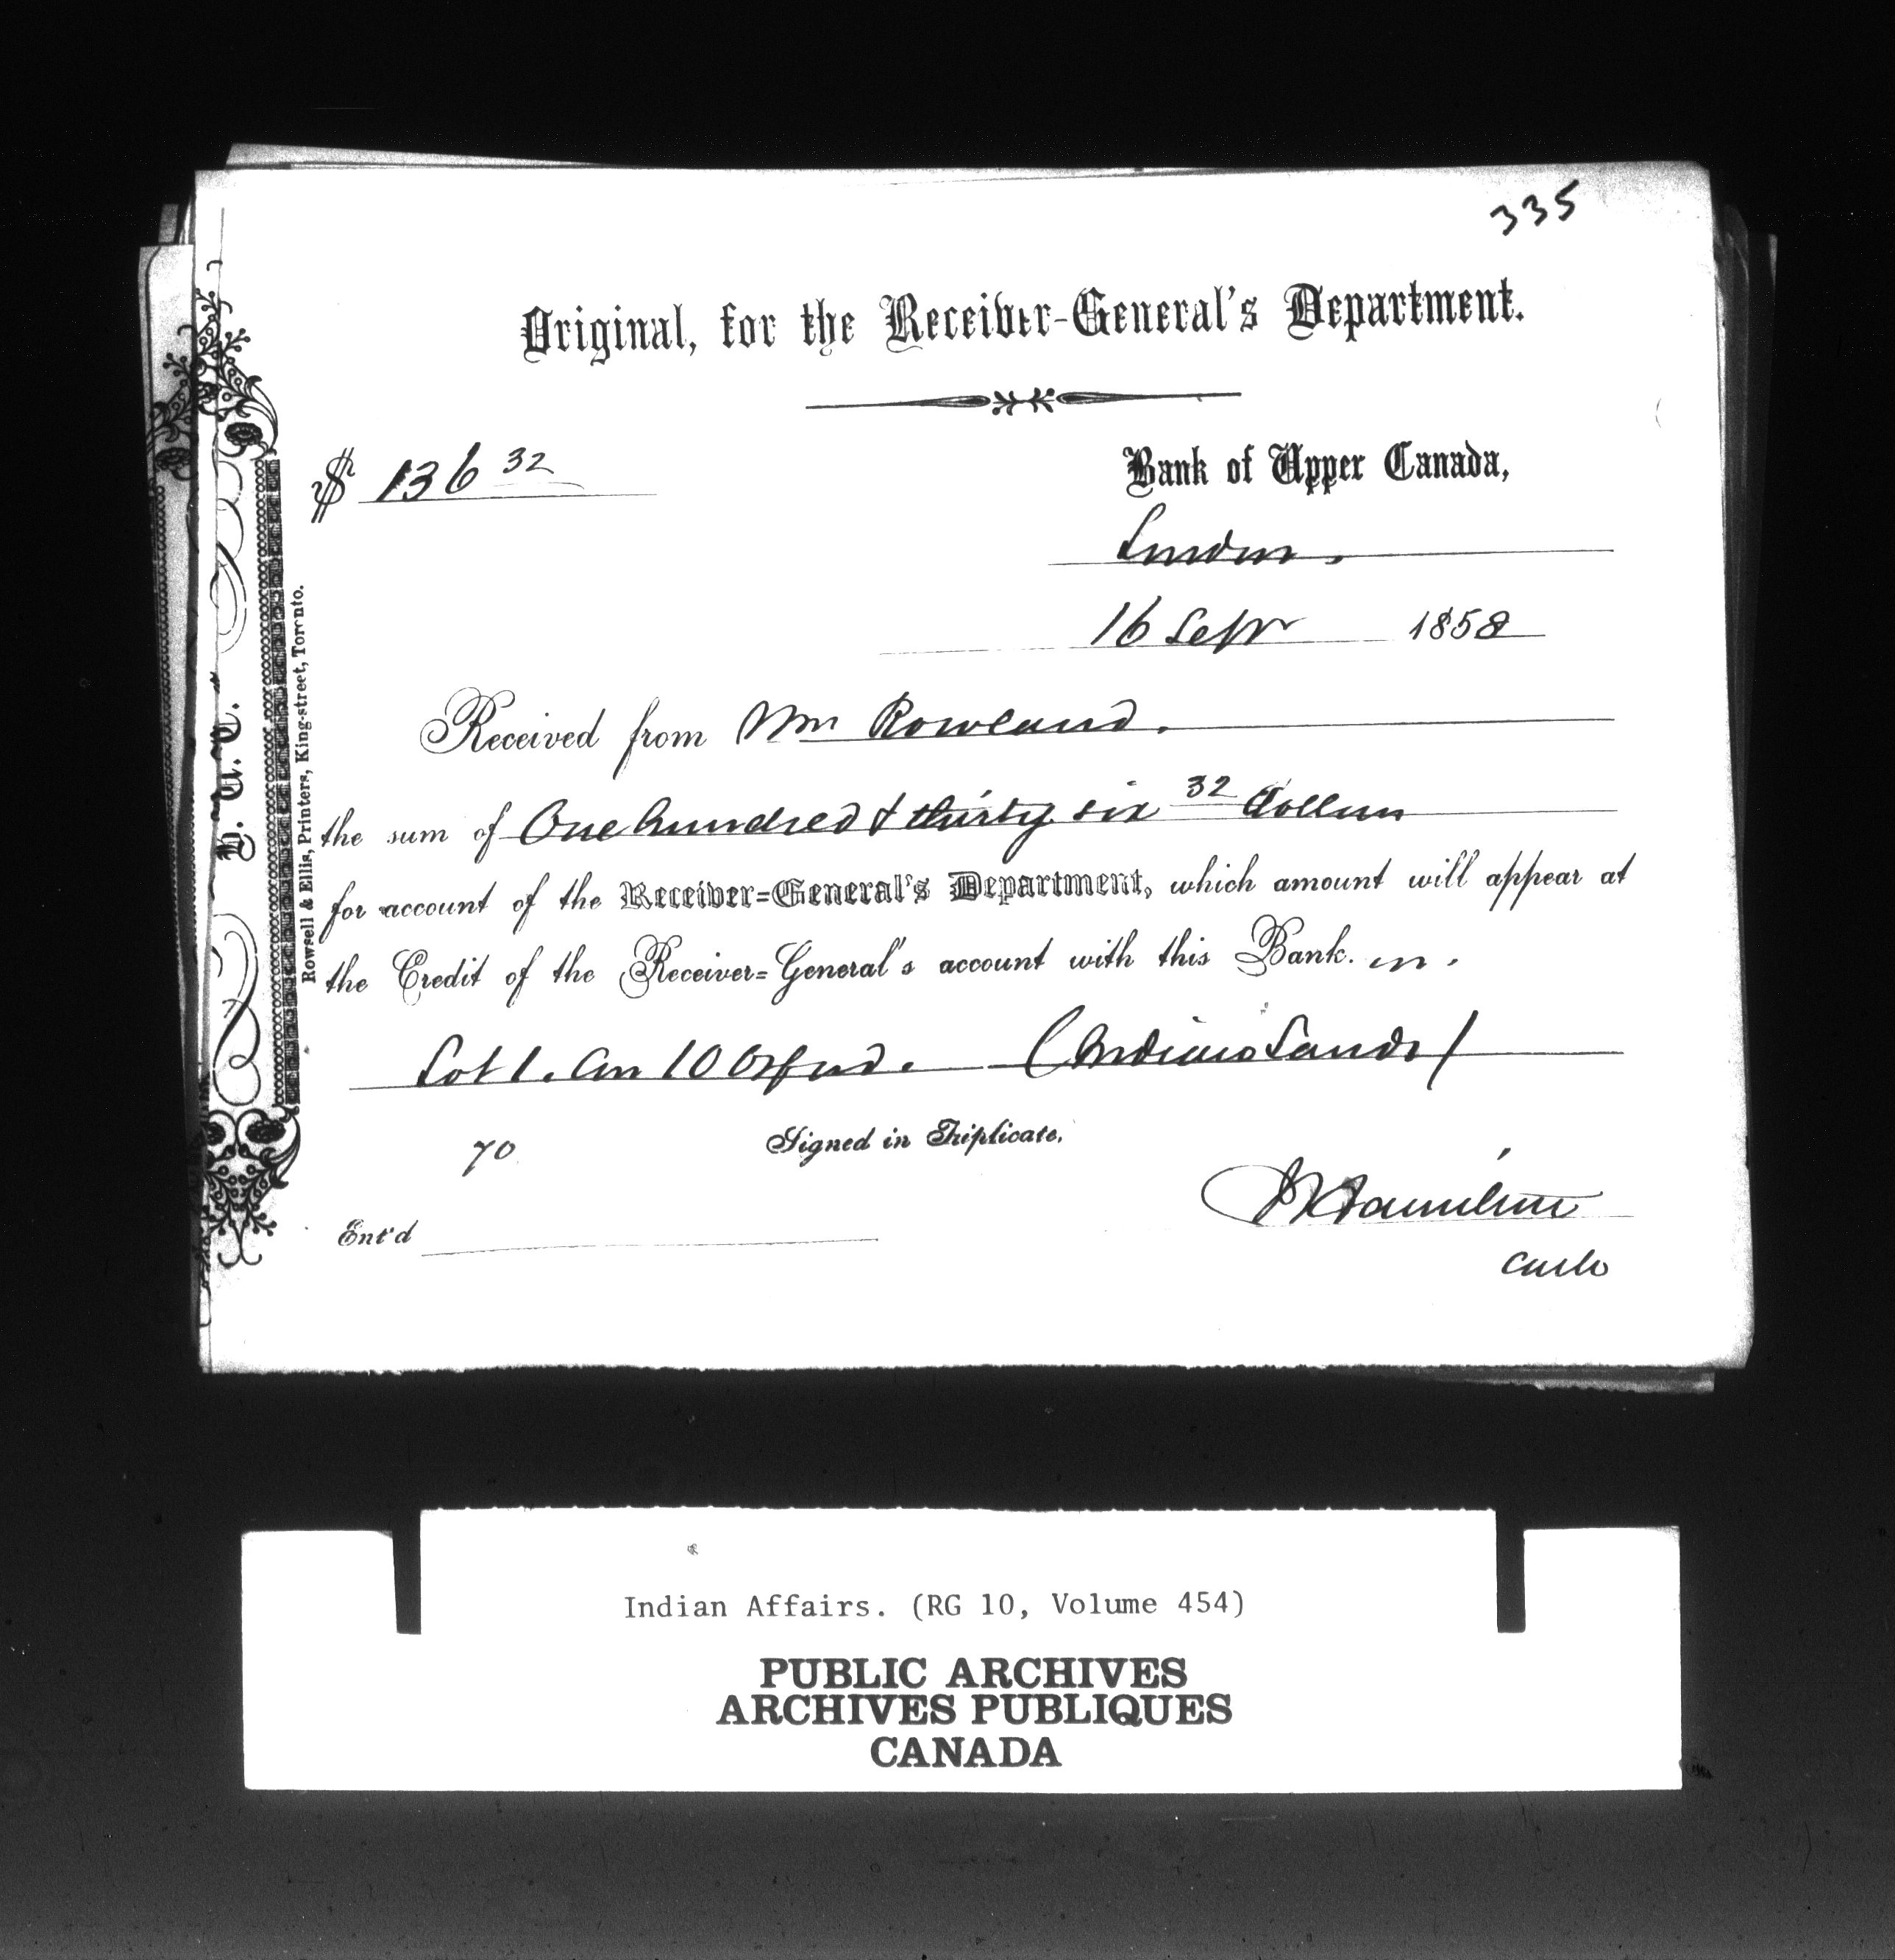 335
Original, for the Receiver-General's Department.
$ 136 32
Bank of Upper Canada,
London.
16 Sepr 1858
Received from Wm Rowland.
the sum of One hundred & thirty six 32 Dollars
for account of the Receiver-General's Department, which amount will appear at
the Credit of the Receiver-General's account with this Bank. on.
Lot 1. Con 10 Orford. (Indian Lands)
70
Signed in Triplicate.
J Hamilton
Ent'd
Cash
B. U. C.
Rowsell & Ellis, Printers, King-street, Toronto.
Indian Affairs. (RG 10, Volume 454)
PUBLIC ARCHIVES
ARCHIVES PUBLIQUES
CANADA